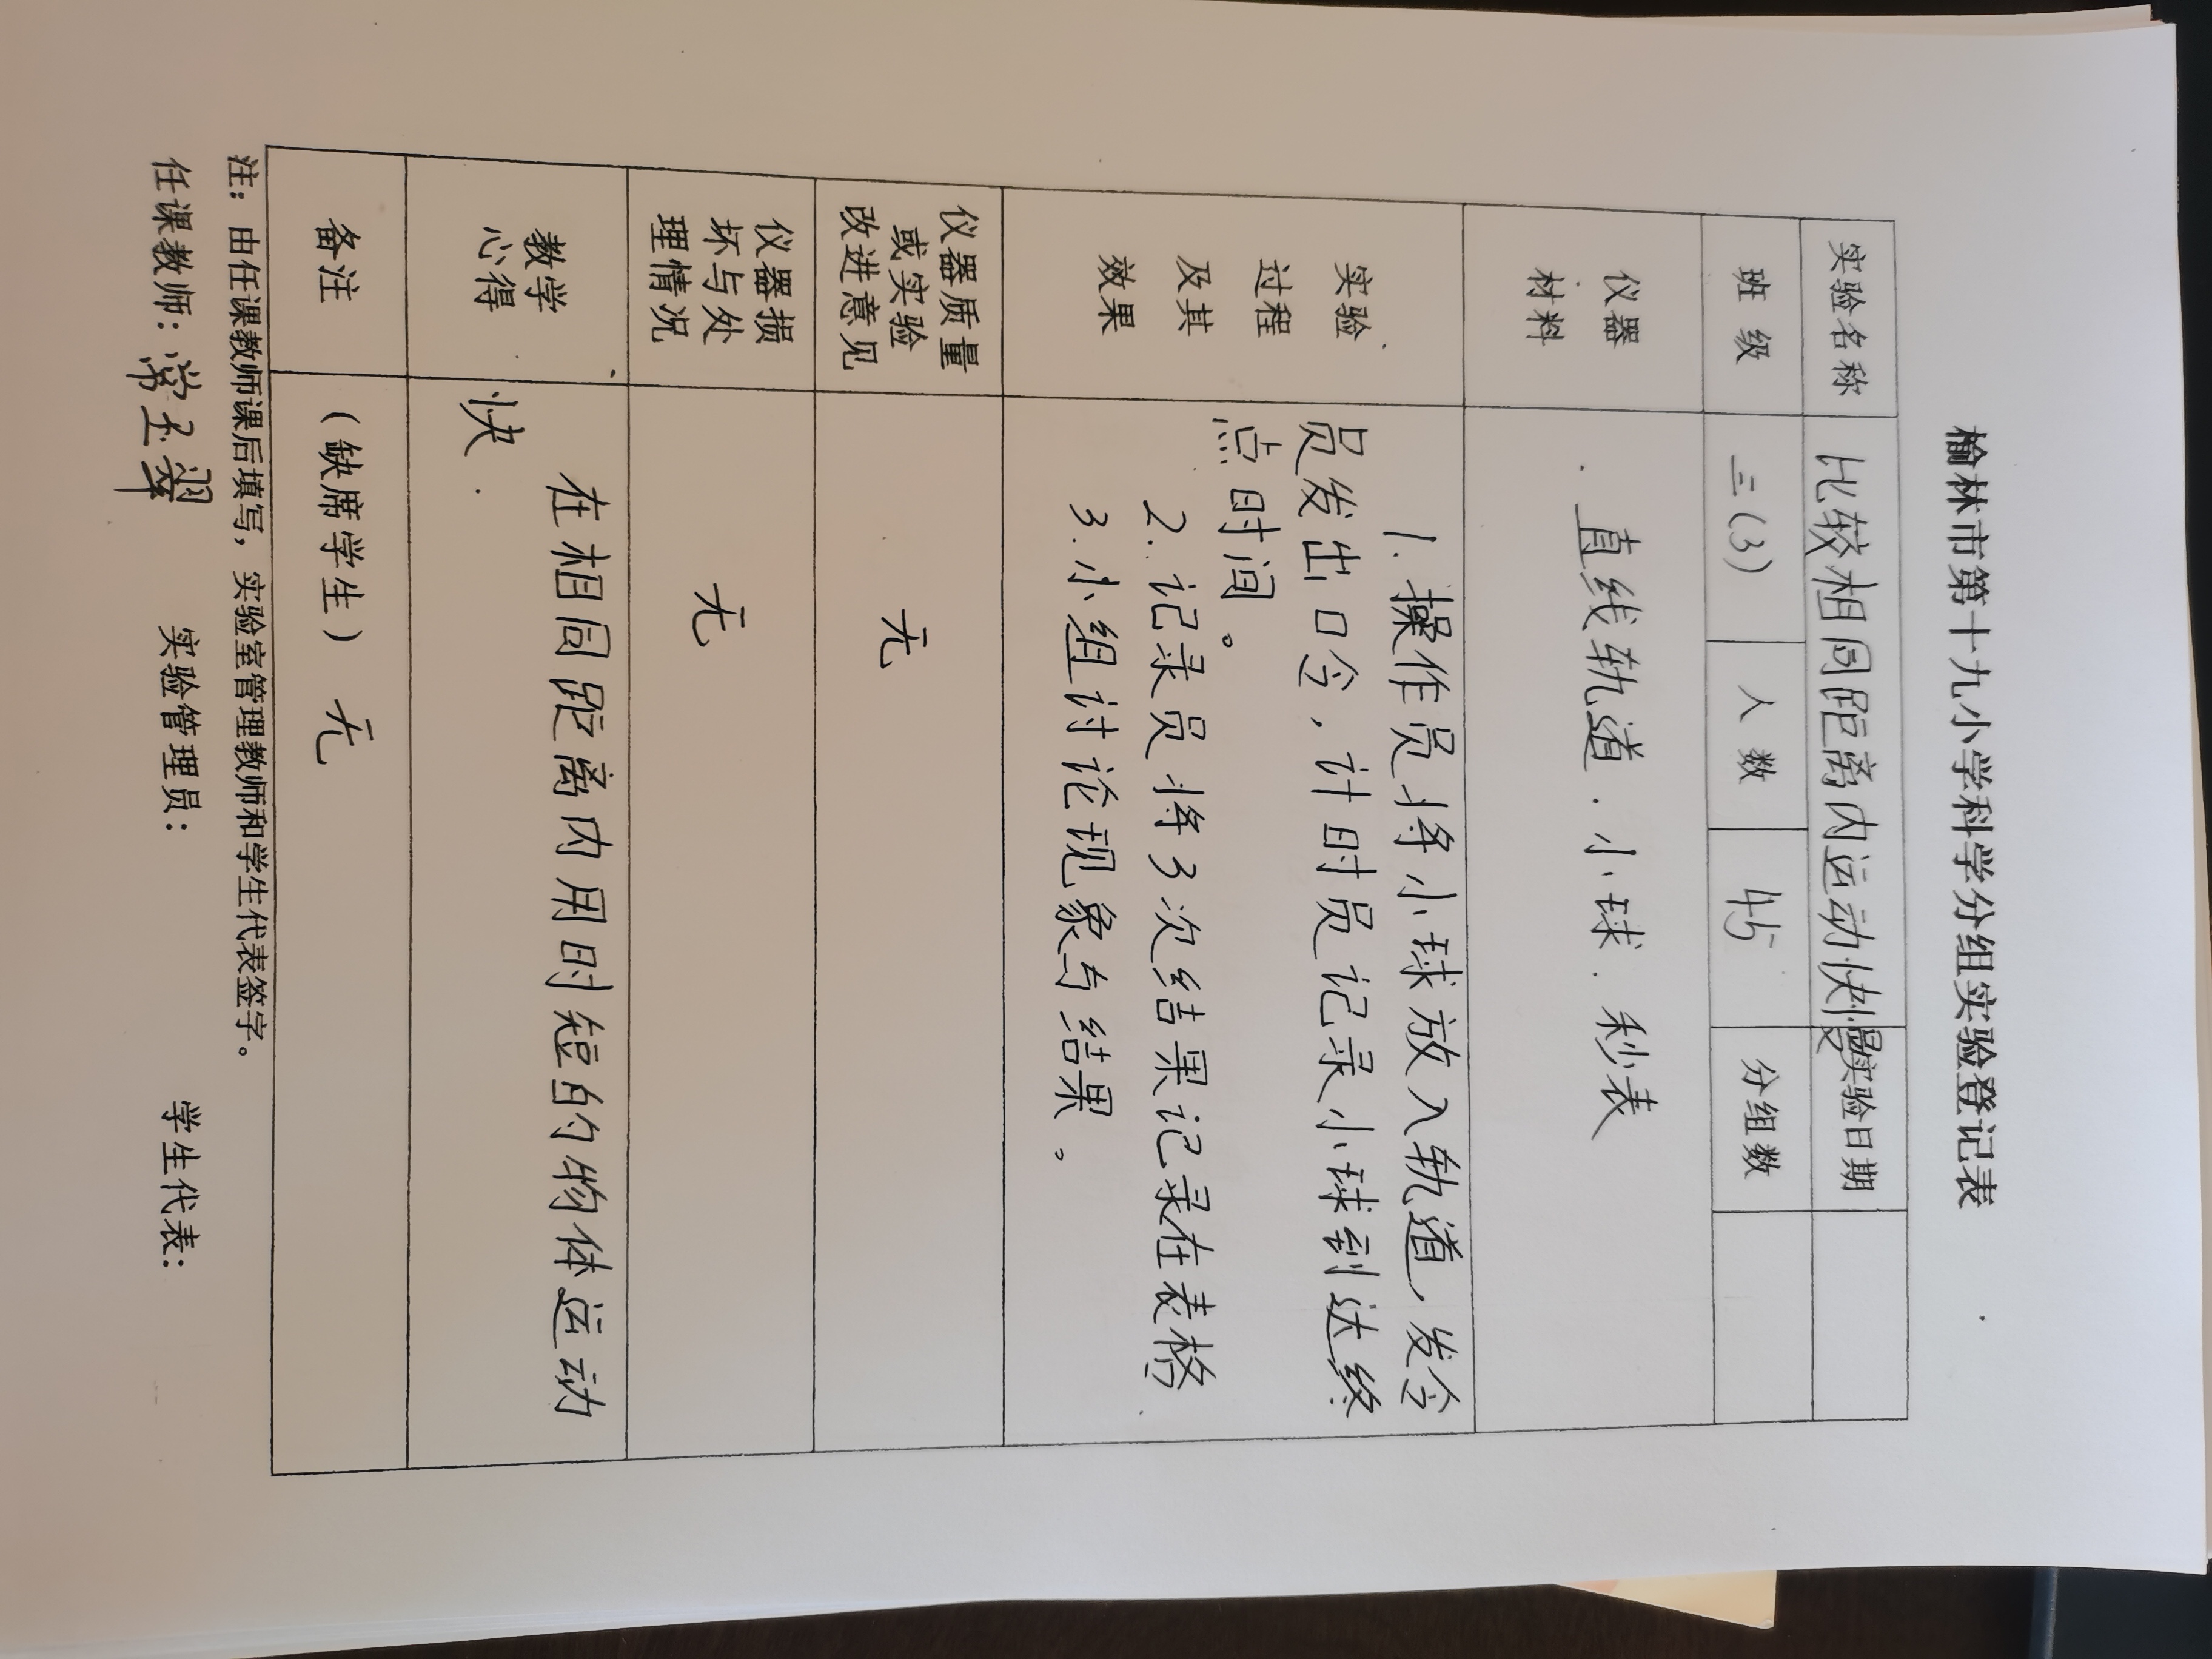 榆林市第十九小学科学分组实验登记表
实验名称 比较相同距离内运动快慢 实验日期
班 级 三(3) 人 数 45 分组数
仪器
材料
直线轨道．小球．秒表
实验
过程
及其
效果
1.操作员将小球放入轨道，发令
员发出口令，计时员记录小球到达终
点时间。
2.记录员将3次结果记录在表格
3.小组讨论现象与结果。
仪器质量
或实验
改进意见
无
仪器损
坏与处
理情况
无
教学
心得
在相同距离内用时短的物体运动
快．
备注 （缺席学生）无
注：由任课教师课后填写，实验室管理教师和学生代表签字。
任课教师：常玉翠 实验管理员： 学生代表：